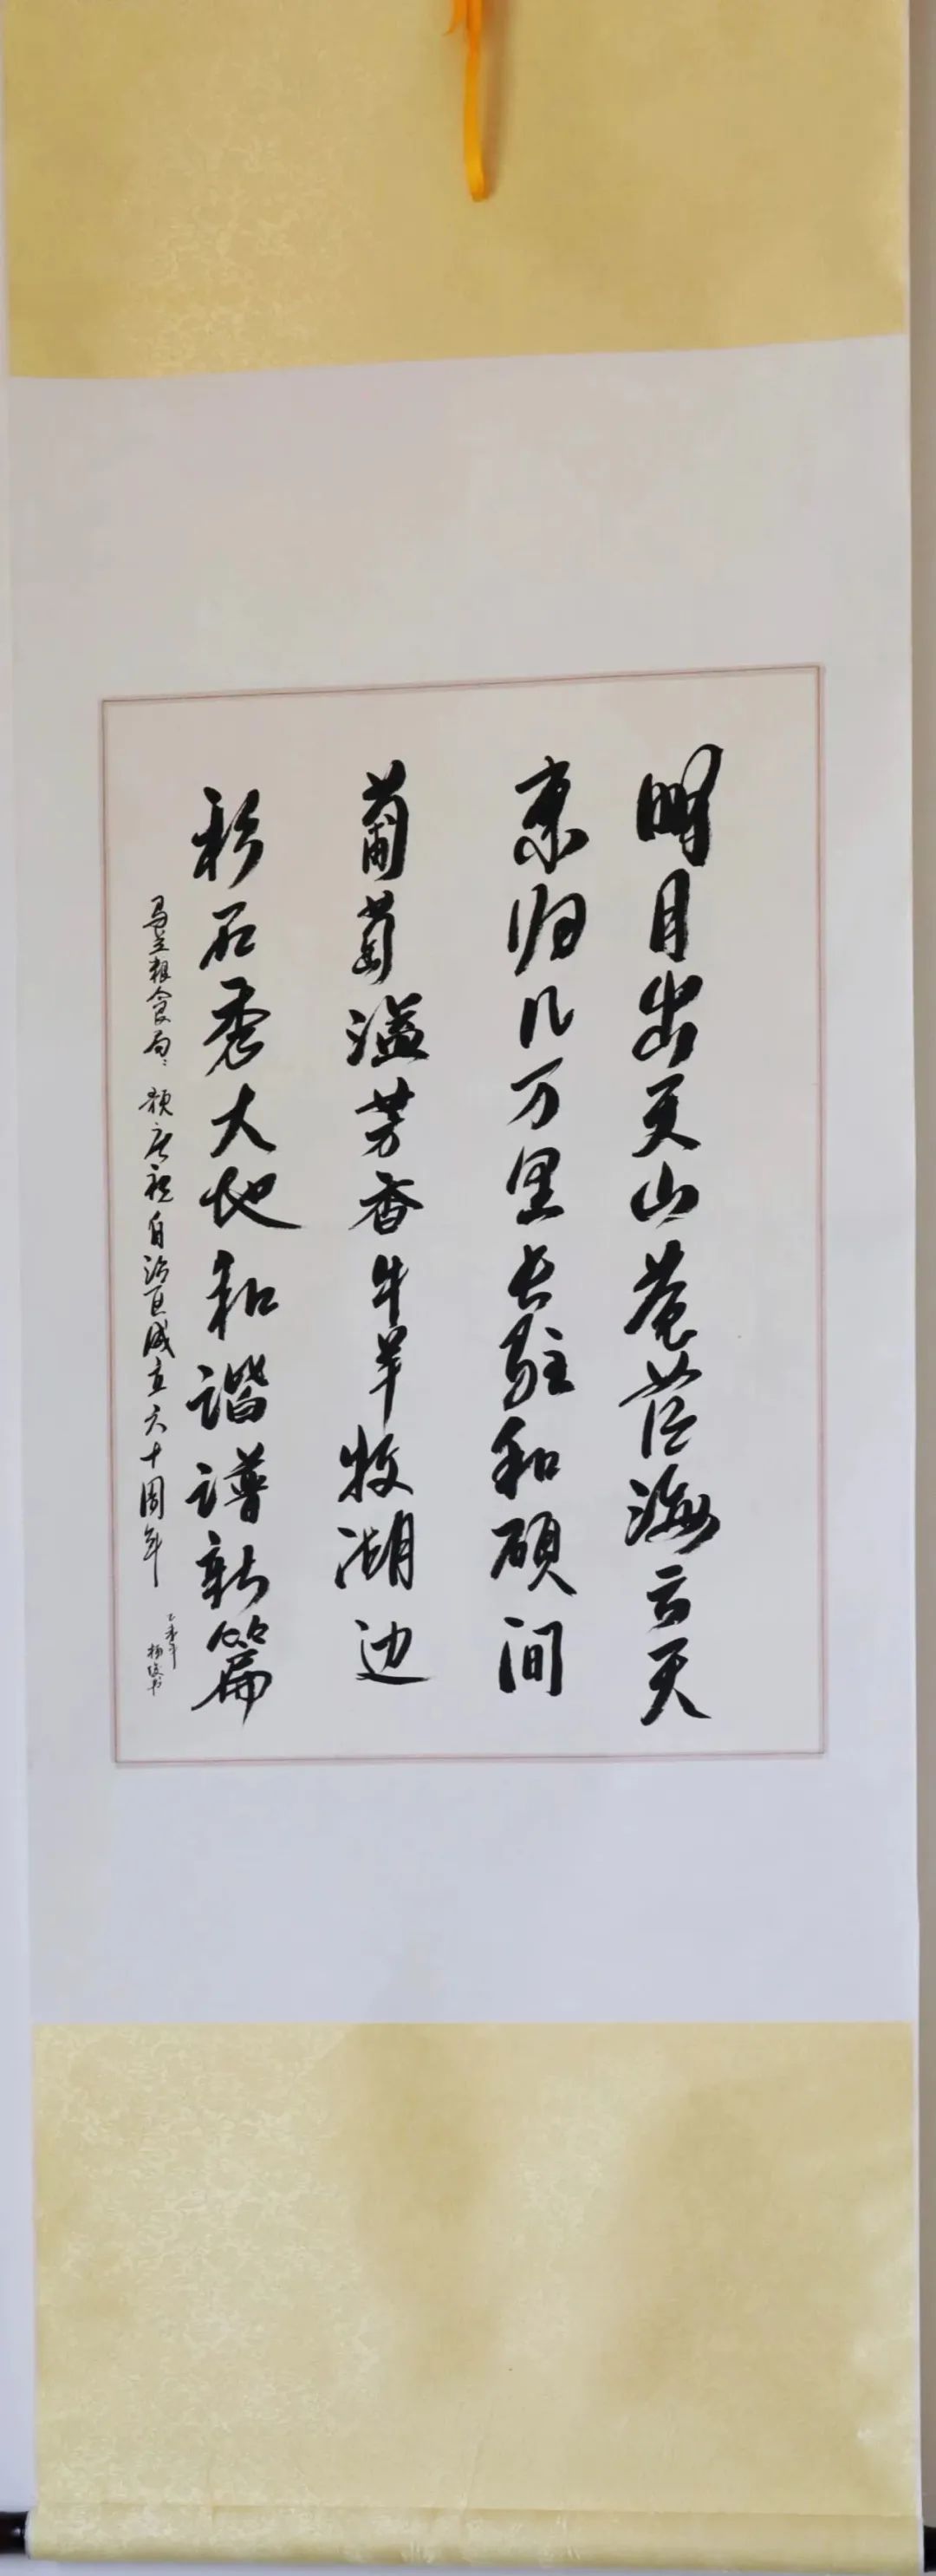 明月出天山苍茫海云天
东归几万里长驻和硕间
葡萄溢芳香牛羊牧湖边
彩石秀大地和谐谱新篇
粮食局 庆祝自治区成立六十周年
乙未年
杨 书